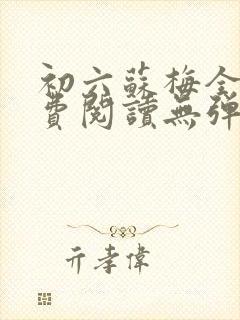 初六蘇梅全
費閱讀無彈
亓孝偉